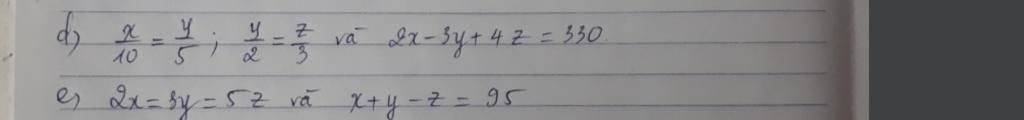 d) x/10 = y/5 ; y/2 = z/3 và 2x - 3y + 4z = 330
e) 2x = 3y = 5z và x + y - z = 95